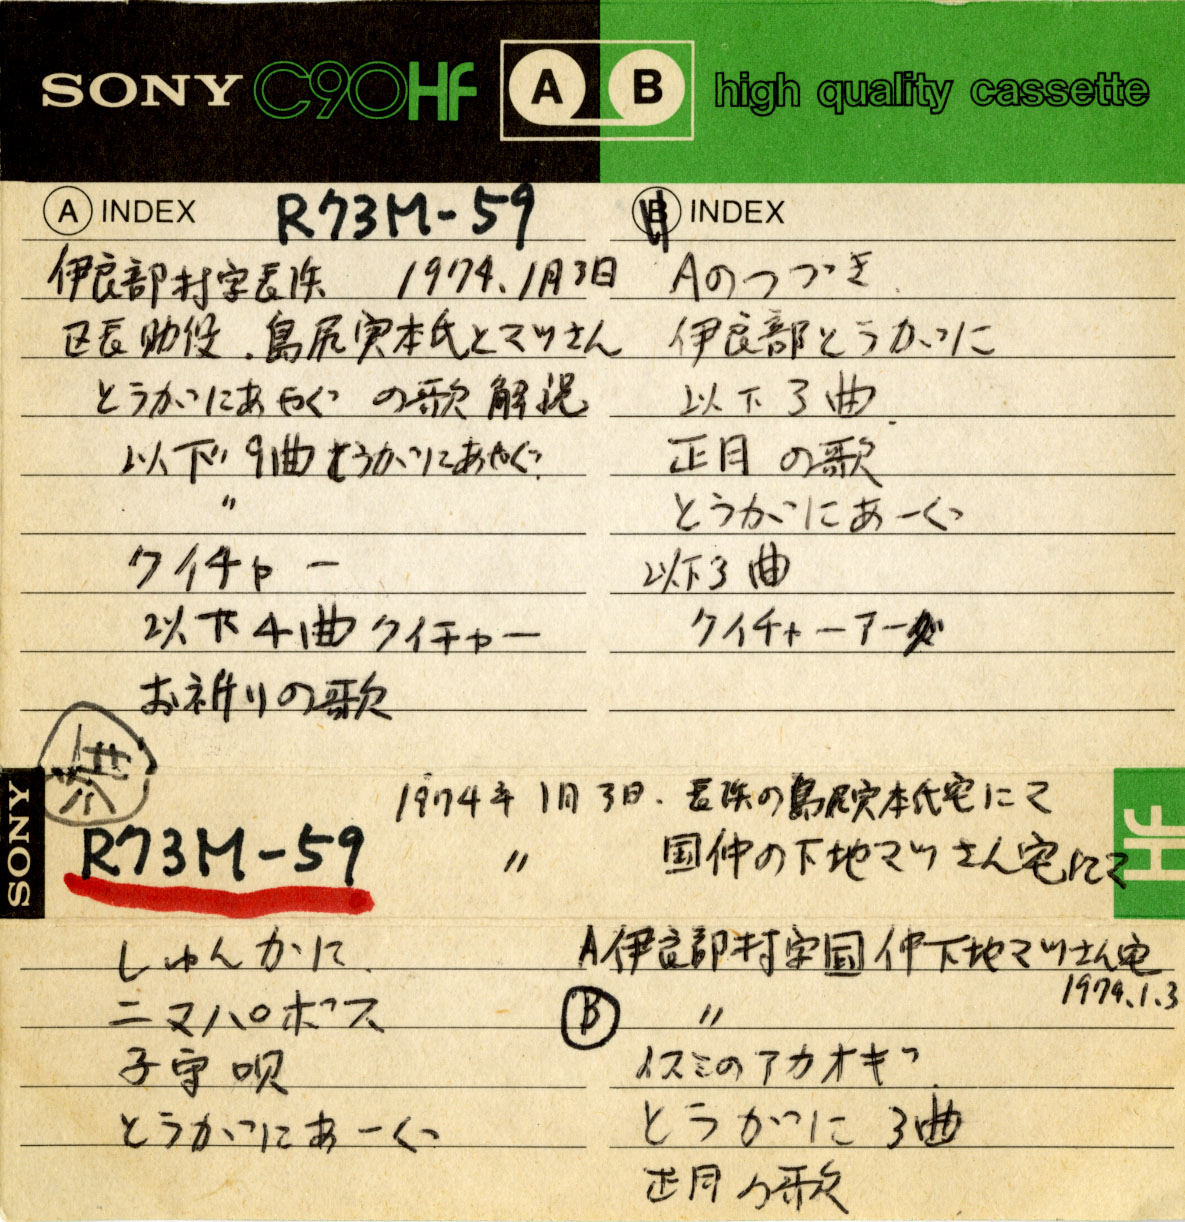 SONY C90Hf A B high quality cassette
A INDEX R73M-59
伊良部村字長浜 1974.1月3日
区長助役.島尻実本氏とマツさん
とうがにあやぐ の歌 解説
以下9曲とうがにあやぐ
〃
クイチャー
以下4曲クイチャー
お祈りの歌
B INDEX
Aのつづき
伊良部とうがに
以下3曲
正月の歌
とうがにあーぐ
以下3曲
クイチャーアーグ
SONY
R73M-59
1974年1月3日.長浜の島尻実本氏宅にて
〃 国仲の下地マツさん宅にて
Hf
しゅんかに
ニマハ○ボウス
子守唄
とうがにあーぐ
A伊良部村字国仲下地マツさん宅
1974.1.3
B 〃
イスミのアカオキ
とうがに 3曲
正月の歌